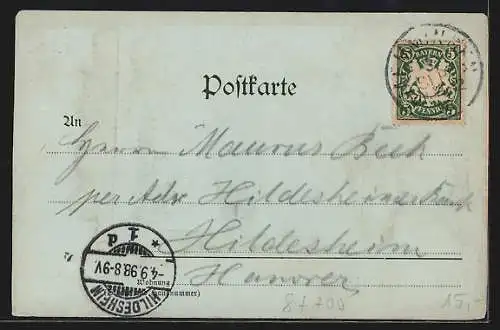 Postkarte
5 BAYERN 5
PFENNIG
An
Herrn Maurus Beck
per Adr. Hildesheimer Bank
Hildesheim
Hanover
Wohnung
HILDESHEIM
-4.9.98.8-9V.
* 1 d
15,-